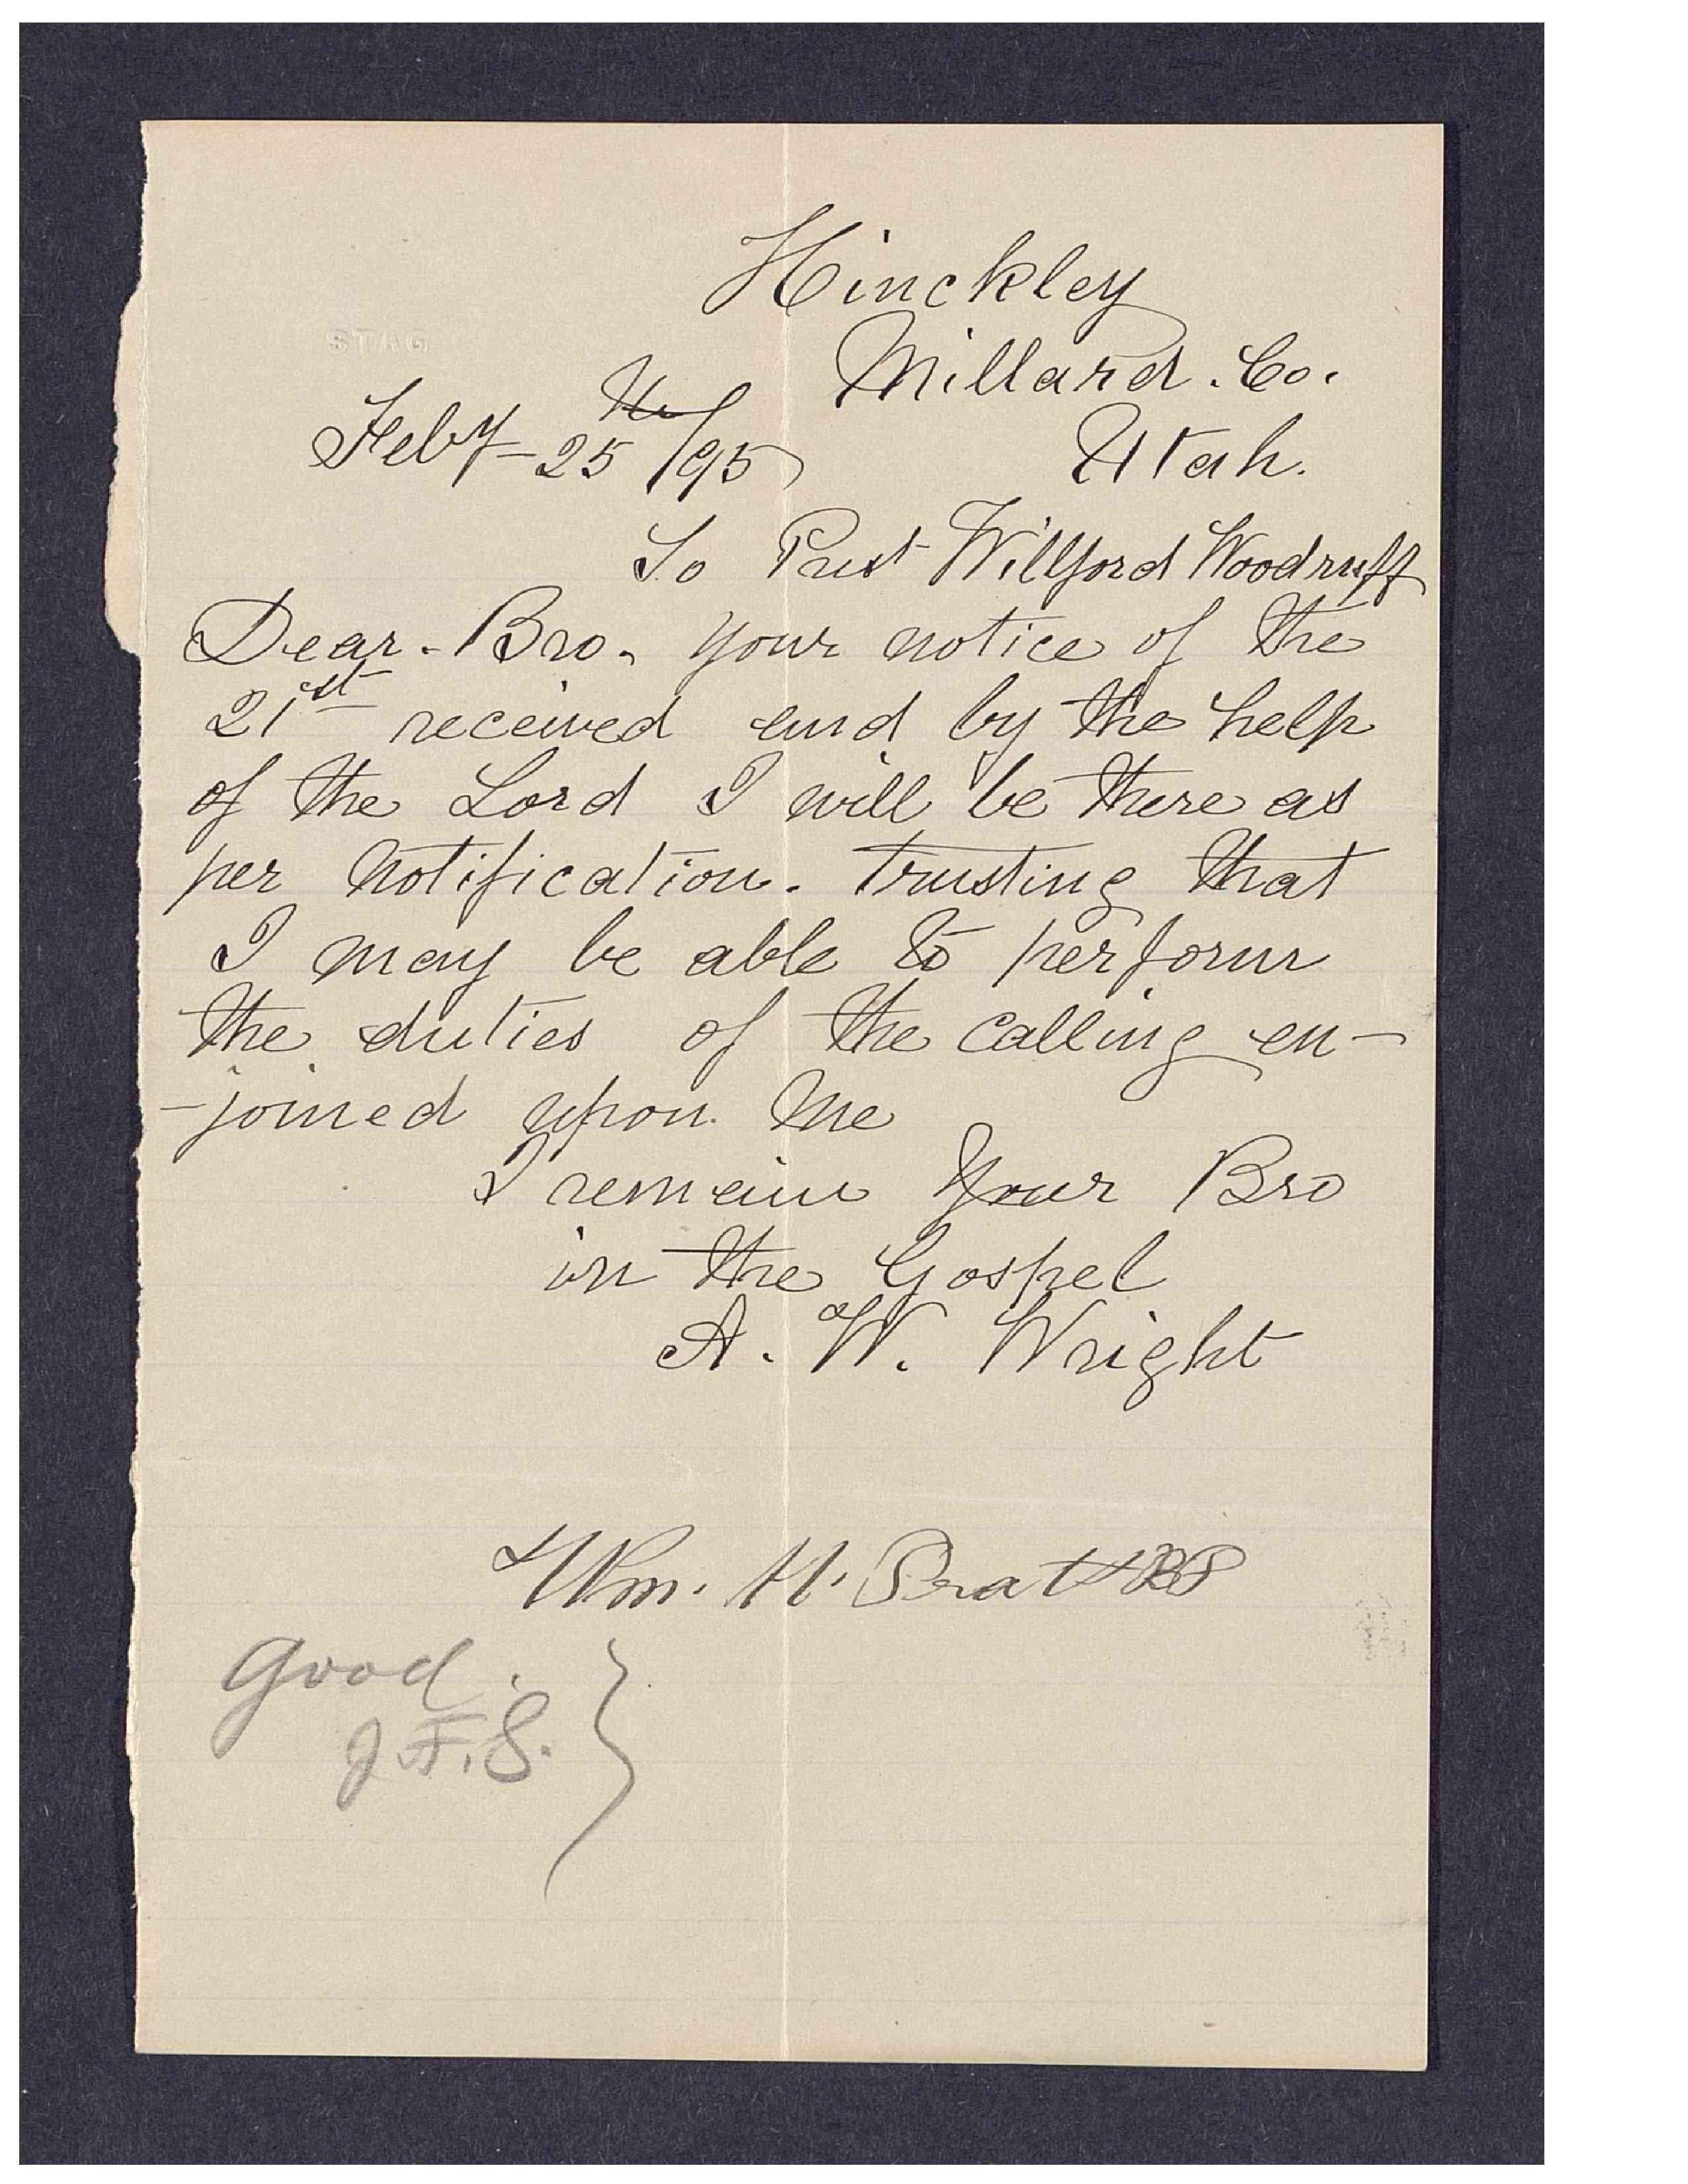 Hinckley
STAG
Millard. Co.
Feby- 25th/95
Utah.
To Prest Willford Woodruff
Dear. Bro. your notice of the
21st received and by the help
of the Lord I will be there as
per notification. trusting that
I may be able to perform
the duties of the calling en-
-joined upon me
I remain Your Bro
in the Gospel
A. W. Wright
Wm. H. Pratt
Good.
J.F.S.